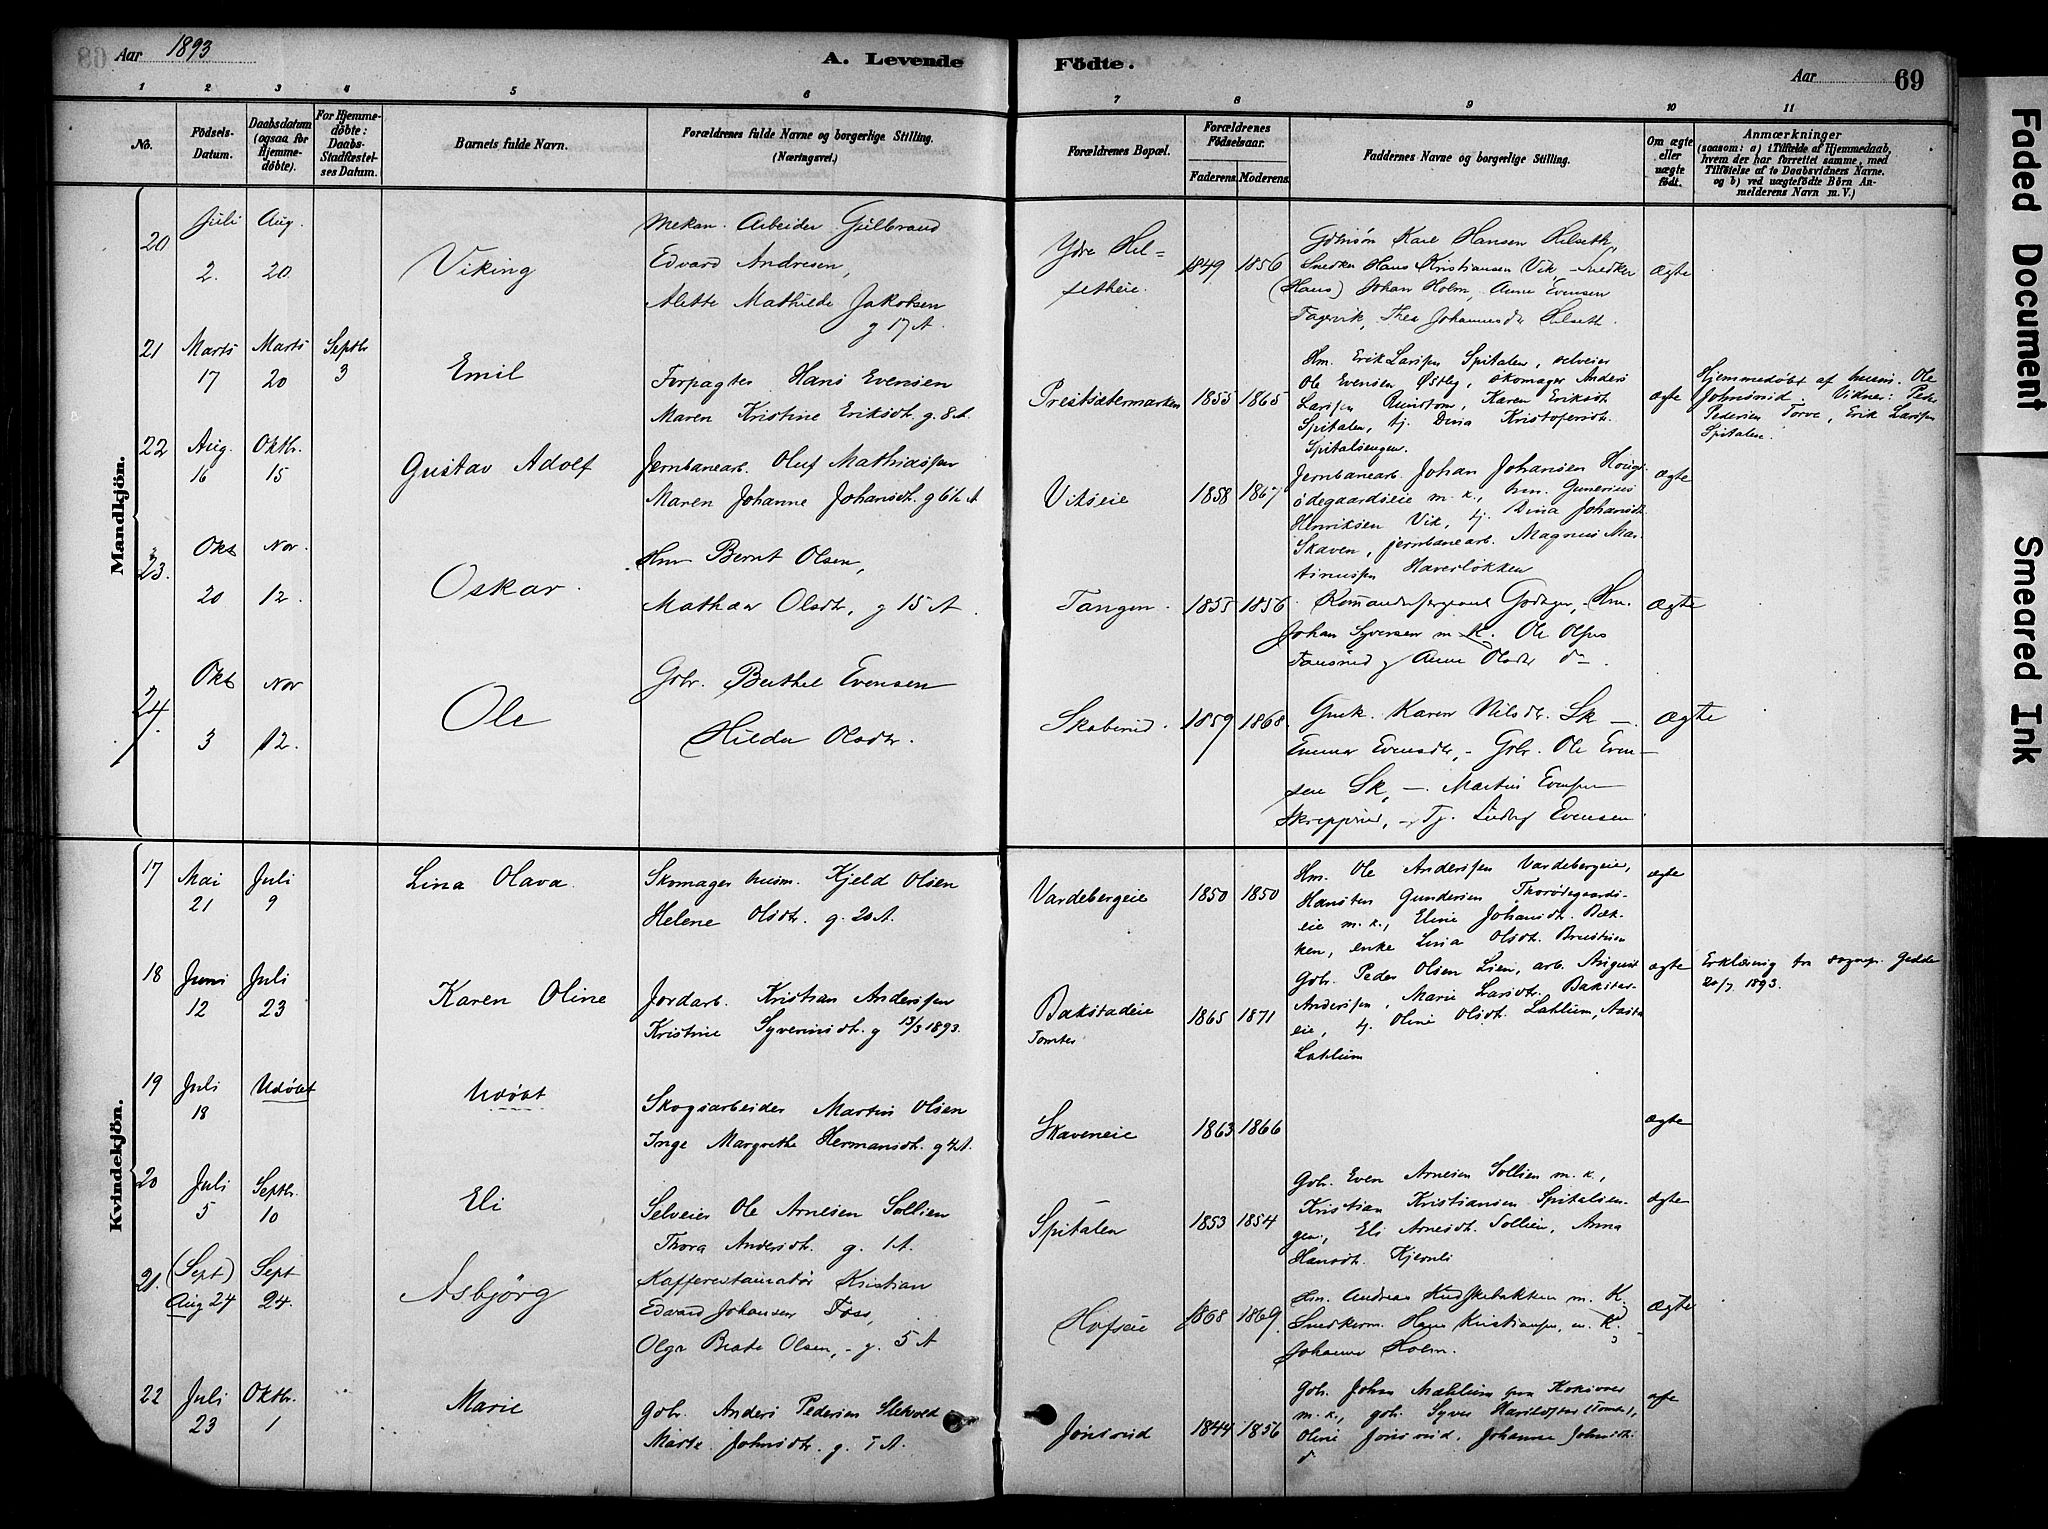 Aar 1893
A. Levende
Födte.
Aar
69
1 2 3 4 5 6 7 8 9 10 11
No.
Födsels-
Datum.
Daabsdatum
(ogsaa for
Hjemme-
döbte).
For Hjemme-
döbte:
Daabs-
Stadfæstel-
ses Datum.
Barnets fulde Navn.
Forældrenes fulde Navne og borgerlige Stilling.
(Næringsvei.)
Forældrenes Bopæl.
Forældrenes
Födselsaar.
Faderens. Moderens.
Faddernes Navne og borgerlige Stilling.
Om ægte
eller
uægte
födt.
Anmærkninger
(saasom: a) i Tilfælde af Hjemmedaab,
hvem der har forrettet samme, med
Tilföielse af to Daabsvidners Navne.
og b) ved uægtefödte Börn An-
melderens Navn m. V.)
Mandkjön.
20
Juli
2.
Aug.
20
Viking
Mekan. Arbeider Gulbrand
Edvard Andresen,
Alette Mathilde Jakobsen
g 17 A.
Ydre Hel=
setheie.
1849 1856
Karl Hansen Helseth,
Snedker Hans Kristiansen Vik, - Snedker
(Hans) Johan Holm, Anne Evensen
Fagervik, Thea Johannesdr Helseth.
Ægte
21
Marts
17
Marts
20
Septbr
3
Emil
Forpagter Hans Evensen
Maren Kristine Eriksdt. g. 8 A
Prestsætermarken
1855 1865
Hm. Erik Larssen Spitalen, selveier
Ole Evensen Østby, skomager Anders
Larssen, Karen Eriksdt
Spitalen, tj. Dina Kristofersdt.
Spitalsengen.
ægte
Hjemmedøbt af husm. Ole
Johnsrud. Vidner: Peder
Pedersen Torve, Erik Larssen
Spitalen.
22
Aug.
16
Oktbr.
15
Gustav Adolf
Jernbanearb. Oluf Mathiassen
Maren Johanne Johansdt. g 6½ A
Vikseie
1858 1867
Jernbanearb. Johan Johansen Houg-
ødegaardseie m. k., hm. Gunerius
Henriksen Vik, tj. Dina Johansdt.
Skaven, jernbanearb. Magnus Mar-
tinussen Haverløkken
Ægte
23.
Okt
20
Nov.
12.
Oskar.
Hm Bernt Olsen,
Mathea Olsdtr, g 15 A.
Tangen.
1855 1856
Komandersergeant Godager, - Hm.
Johan Syversen m. K. Ole Olsen
g Anne Olsdtr do.
Ægte
24.
Okt
3
Nov
12.
Ole
Gbr. Berthel Evensen
Hilda Olsdtr.
Skaberud.
1859 1868
Gmk. Karen Nilsdtr. Sk -.
Emma Evensdtr, - Gbr. Ole Even-
sen Sk, -. Martin Evensen
Skrepperud, - Tj. Ludvg Evensen
Ægte
Kvindekjön.
17
Mai
21
Juli
9
Lina Olava.
Skomager husm. Kjeld Olsen
Helene Olsdt. g. 20 A.
Vardebergeie
1850 1850
Hm. Ole Anderssen Vardebergeie,
Hansten Gundersen Thorødegaards-
eie m. k., Eline Johansdt. Bæk-
ken, enke Lina Olsdt. Brustuen
ægte
18
Juni
12
Juli
23
Karen Oline
Jordarb. Kristian Anderssen
Kristine Syverinsdt. g 13/3 1893.
Bakstadeie
Tomter
1865 1871
Gbr. Peder Olsen Lien, arb. August
Anderssen, Marie Larsdt. Bakstad-
eie, tj. Oline Olsdt. Lahlum, Aasta
Lahlum
ægte
Erklæring fra sognepr. Gedde
20/7 1893.
19
Juli
18
Udøbt
Udøbt
Skogsarbeider Martin Olsen
Inge Margrethe Hermansdt. g 4 A.
Skaveneie
1863 1866
ægte
20
Juli
5
Septbr.
10
Eli
Selveier Ole Arnesen Sollien
Thora Andersdt. g. 1 A.
Spitalen
1853 1854
Gbr. Even Arnesen Sollien m. k.,
Kristian Kristiansen Spitalsen-
gen, Eli Arnesdt. Sollien, Anna
Hansdt. Kjernli
ægte
21.
(Sept)
Aug 24
Sept
24.
Asbjörg
Kafferestauratør Kristian
Edvard Johansen Foss,
Olga Beate Olsen, - g. 5 A
Hofseie
1868 1869.
Hm. Andreas Kudskebakken m. K.
Snedkerm. Hans Kristiansen, m. K.
Johanne Holm.
Ægte
22
Juli
23
Oktbr.
1
Marie
Gbr. Anders Pedersen
Marte Johnsdt. g. 7 A.
Jønsrud
1844 1856
Gbr. Johan Mæhlum
m. k., gbr. Syver (Tomter),
Oline Jønsrud, Johanne Johnsdt.
d
Faded Document
Smeared Ink